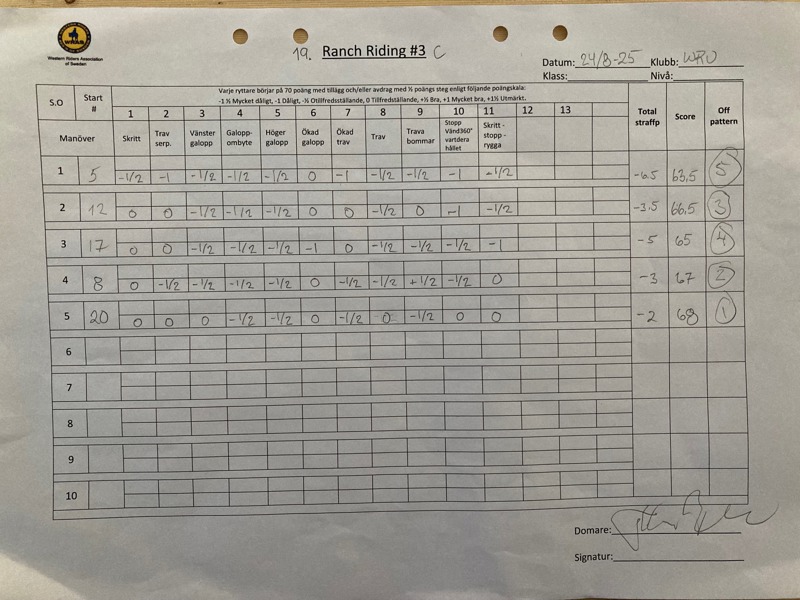 WRAS
Western Riders Association
of Sweden
19. Ranch Riding #3 C
Datum: 24/8-25 Klubb: WRU
Klass: Nivå:
Varje ryttare börjar på 70 poäng med tillägg och/eller avdrag med ½ poängs steg enligt följande poängskala:
-1 ½ Mycket dåligt, -1 Dåligt, -½ Otillfredsställande, 0 Tillfredställande, +½ Bra, +1 Mycket bra, +1½ Utmärkt.
S.O Start # 1 2 3 4 5 6 7 8 9 10 11 12 13 Total straffp Score Off pattern
Manöver Skritt Trav serp. Vänster galopp Galopp-ombyte Höger galopp Ökad galopp Ökad trav Trav Trava bommar Stopp Vänd360° vartdera hållet Skritt - stopp - rygga
1 5 -1/2 -1 -1/2 -1/2 -1/2 0 -1 -1/2 -1/2 -1 -1/2 -6.5 63,5 5
2 12 0 0 -1/2 -1/2 -1/2 0 0 -1/2 0 -1 -1/2 -3.5 66,5 3
3 17 0 0 -1/2 -1/2 -1/2 -1 0 -1/2 -1/2 -1/2 -1 -5 65 4
4 8 0 -1/2 -1/2 -1/2 -1/2 0 -1/2 -1/2 +1/2 -1/2 0 -3 67 2
5 20 0 0 0 -1/2 -1/2 0 -1/2 0 -1/2 0 0 -2 68 1
6
7
8
9
10
Domare:
Signatur: